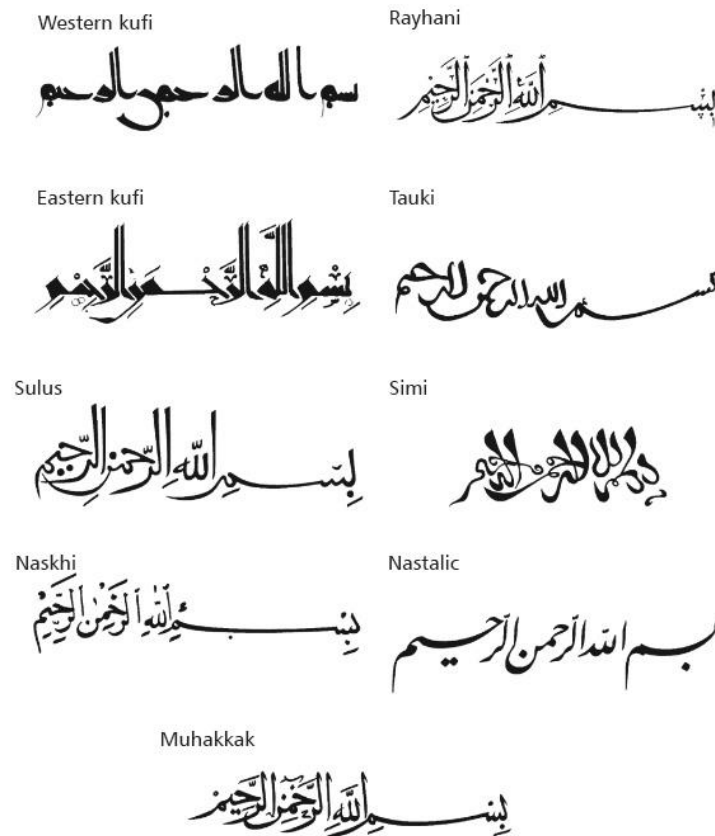 Western kufi
بسم الله الرحمن الرحيم
Rayhani
بسم الله الرحمن الرحيم
Eastern kufi
بسم الله الرحمن الرحيم
Tauki
بسم الله الرحمن الرحيم
Sulus
بسم الله الرحمن الرحيم
Simi
بسم الله الرحمن الرحيم
Naskhi
بسم الله الرحمن الرحيم
Nastalic
بسم الله الرحمن الرحيم
Muhakkak
بسم الله الرحمن الرحيم